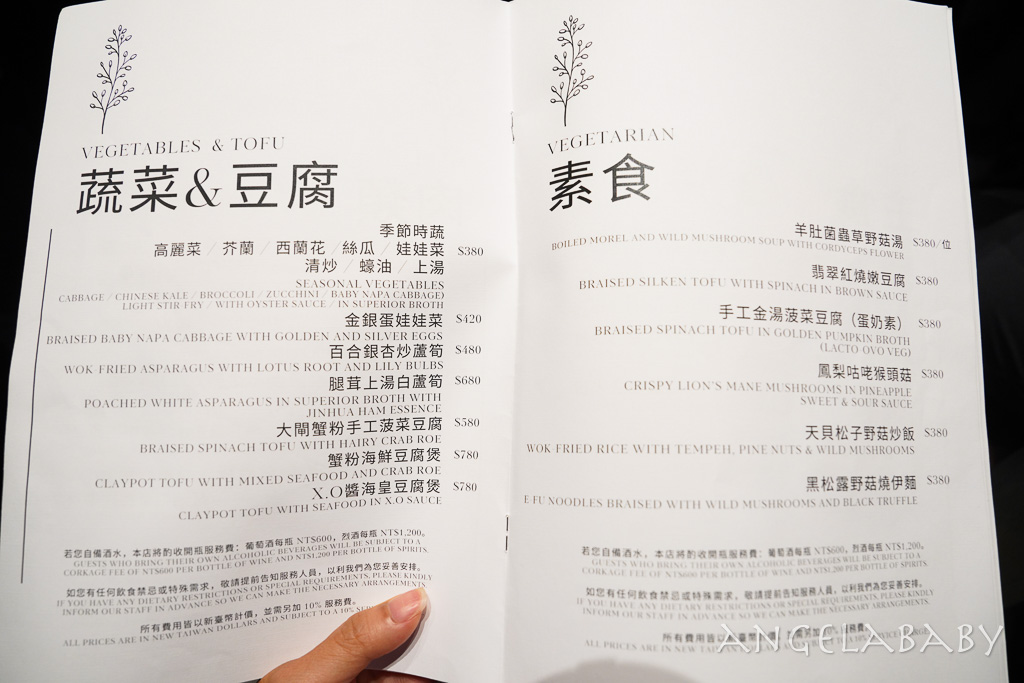 VEGETABLES & TOFU
蔬菜&豆腐
季節時蔬
高麗菜 / 芥蘭 / 西蘭花 / 絲瓜 / 娃娃菜 $380
清炒 / 蠔油 / 上湯
SEASONAL VEGETABLES
CABBAGE / CHINESE KALE / BROCCOLI / ZUCCHINI / BABY NAPA CABBAGE)
LIGHT STIR FRY / WITH OYSTER SAUCE / IN SUPERIOR BROTH
金銀蛋娃娃菜 $420
BRAISED BABY NAPA CABBAGE WITH GOLDEN AND SILVER EGGS
百合銀杏炒蘆筍 $480
WOK-FRIED ASPARAGUS WITH LOTUS ROOT AND LILY BULBS
腿茸上湯白蘆筍 $680
POACHED WHITE ASPARAGUS IN SUPERIOR BROTH WITH
JINHUA HAM ESSENCE
大閘蟹粉手工菠菜豆腐 $580
BRAISED SPINACH TOFU WITH HAIRY CRAB ROE
蟹粉海鮮豆腐煲 $780
CLAYPOT TOFU WITH MIXED SEAFOOD AND CRAB ROE
X.O醬海皇豆腐煲 $780
CLAYPOT TOFU WITH SEAFOOD IN X.O SAUCE
若您自備酒水，本店將酌收開瓶服務費：葡萄酒每瓶 NT$600，烈酒每瓶 NT$1,200。
GUESTS WHO BRING THEIR OWN ALCOHOLIC BEVERAGES WILL BE SUBJECT TO A
CORKAGE FEE OF NT$600 PER BOTTLE OF WINE AND NT$1,200 PER BOTTLE OF SPIRITS.
如您有任何飲食禁忌或特殊需求，敬請提前告知服務人員，以利我們為您妥善安排。
IF YOU HAVE ANY DIETARY RESTRICTIONS OR SPECIAL REQUIREMENTS, PLEASE KINDLY
INFORM OUR STAFF IN ADVANCE SO WE CAN MAKE THE NECESSARY ARRANGEMENTS.
所有費用皆以新臺幣計價，並需另加 10% 服務費。
ALL PRICES ARE IN NEW TAIWAN DOLLARS AND SUBJECT TO A 10%
VEGETARIAN
素食
羊肚菌蟲草野菇湯 $380/位
BOILED MOREL AND WILD MUSHROOM SOUP WITH CORDYCEPS FLOWER
翡翠紅燒嫩豆腐 $380
BRAISED SILKEN TOFU WITH SPINACH IN BROWN SAUCE
手工金湯菠菜豆腐（蛋奶素） $380
BRAISED SPINACH TOFU IN GOLDEN PUMPKIN BROTH
(LACTO-OVO VEG)
鳳梨咕咾猴頭菇 $380
CRISPY LION'S MANE MUSHROOMS IN PINEAPPLE
SWEET & SOUR SAUCE
天貝松子野菇炒飯 $380
WOK FRIED RICE WITH TEMPEH, PINE NUTS & WILD MUSHROOMS
黑松露野菇燒伊麵 $380
E FU NOODLES BRAISED WITH WILD MUSHROOMS AND BLACK TRUFFLE
若您自備酒水，本店將酌收開瓶服務費：葡萄酒每瓶 NT$600，烈酒每瓶 NT$1,200。
GUESTS WHO BRING THEIR OWN ALCOHOLIC BEVERAGES WILL BE SUBJECT TO A
CORKAGE FEE OF NT$600 PER BOTTLE OF WINE AND NT$1,200 PER BOTTLE OF SPIRITS.
如您有任何飲食禁忌或特殊需求，敬請提前告知服務人員，以利我們為您妥善安排。
IF YOU HAVE ANY DIETARY RESTRICTIONS OR SPECIAL REQUIREMENTS, PLEASE KINDLY
INFORM OUR STAFF IN ADVANCE SO WE CAN MAKE THE NECESSARY ARRANGEMENTS.
所有費用皆以新臺幣計價，並需另加 10% 服務費。
ALL PRICES ARE IN NEW TAIWAN
ANGELABABY